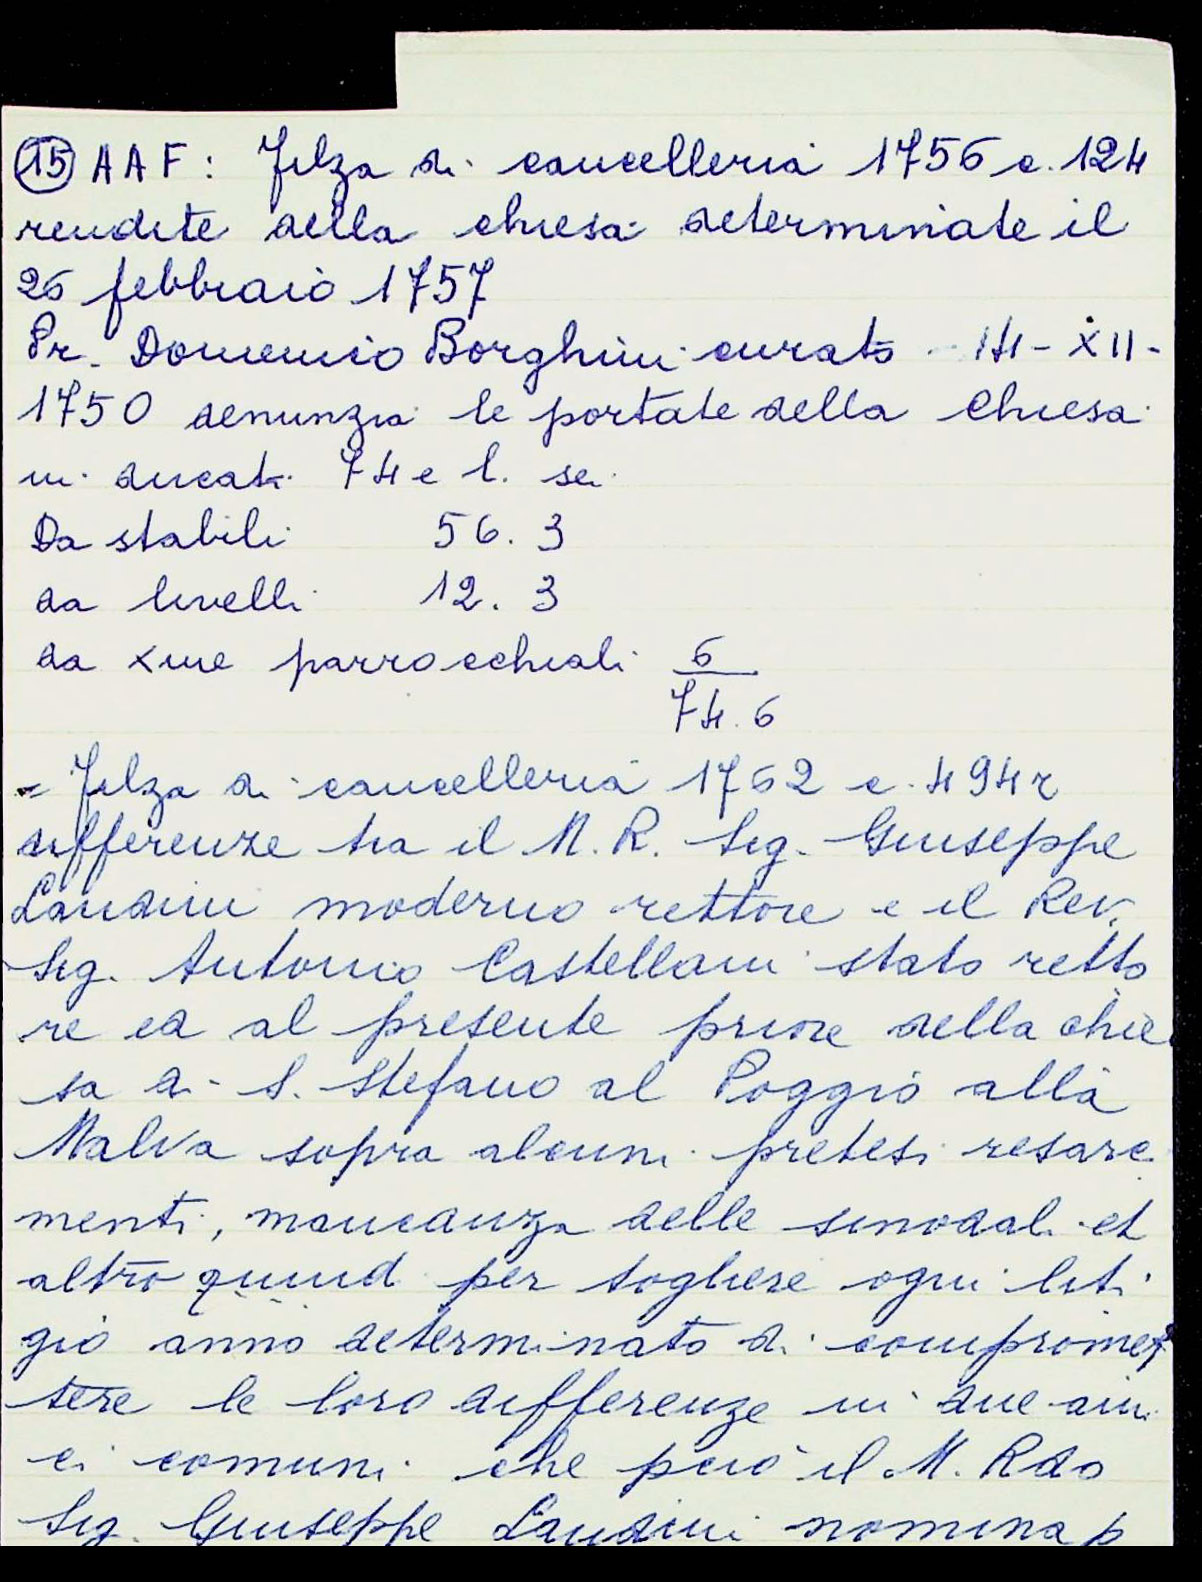 15 AAF: Filza di cancelleria 1756 c. 124
rendite della chiesa determinate il
26 febbraio 1757
Pr. Domenico Borghini curato - 14 - XII -
1750 denunzia le portate della Chiesa
in ducati 74 e l. sei
Da stabili 56. 3
da livelli 12. 3
da Xme parrocchiali 6
74. 6
= Filza di cancelleria 1762 c. 494r
differenze tra il M. R. Sig. Giuseppe
Landini moderno rettore e il Rev.
Sig. Antonio Castellani stato retto
re ed al presente priore della chie
sa di S. Stefano al Poggio alla
Malva sopra alcuni pretesi resarci
menti, mancanza delle sinodali et
altro quind per togliere ogni liti
gio anno determinato di compromet
tere le loro differenze in due ami
ci comuni che perciò il M. Rdo
Sig. Giuseppe Landini nomina p